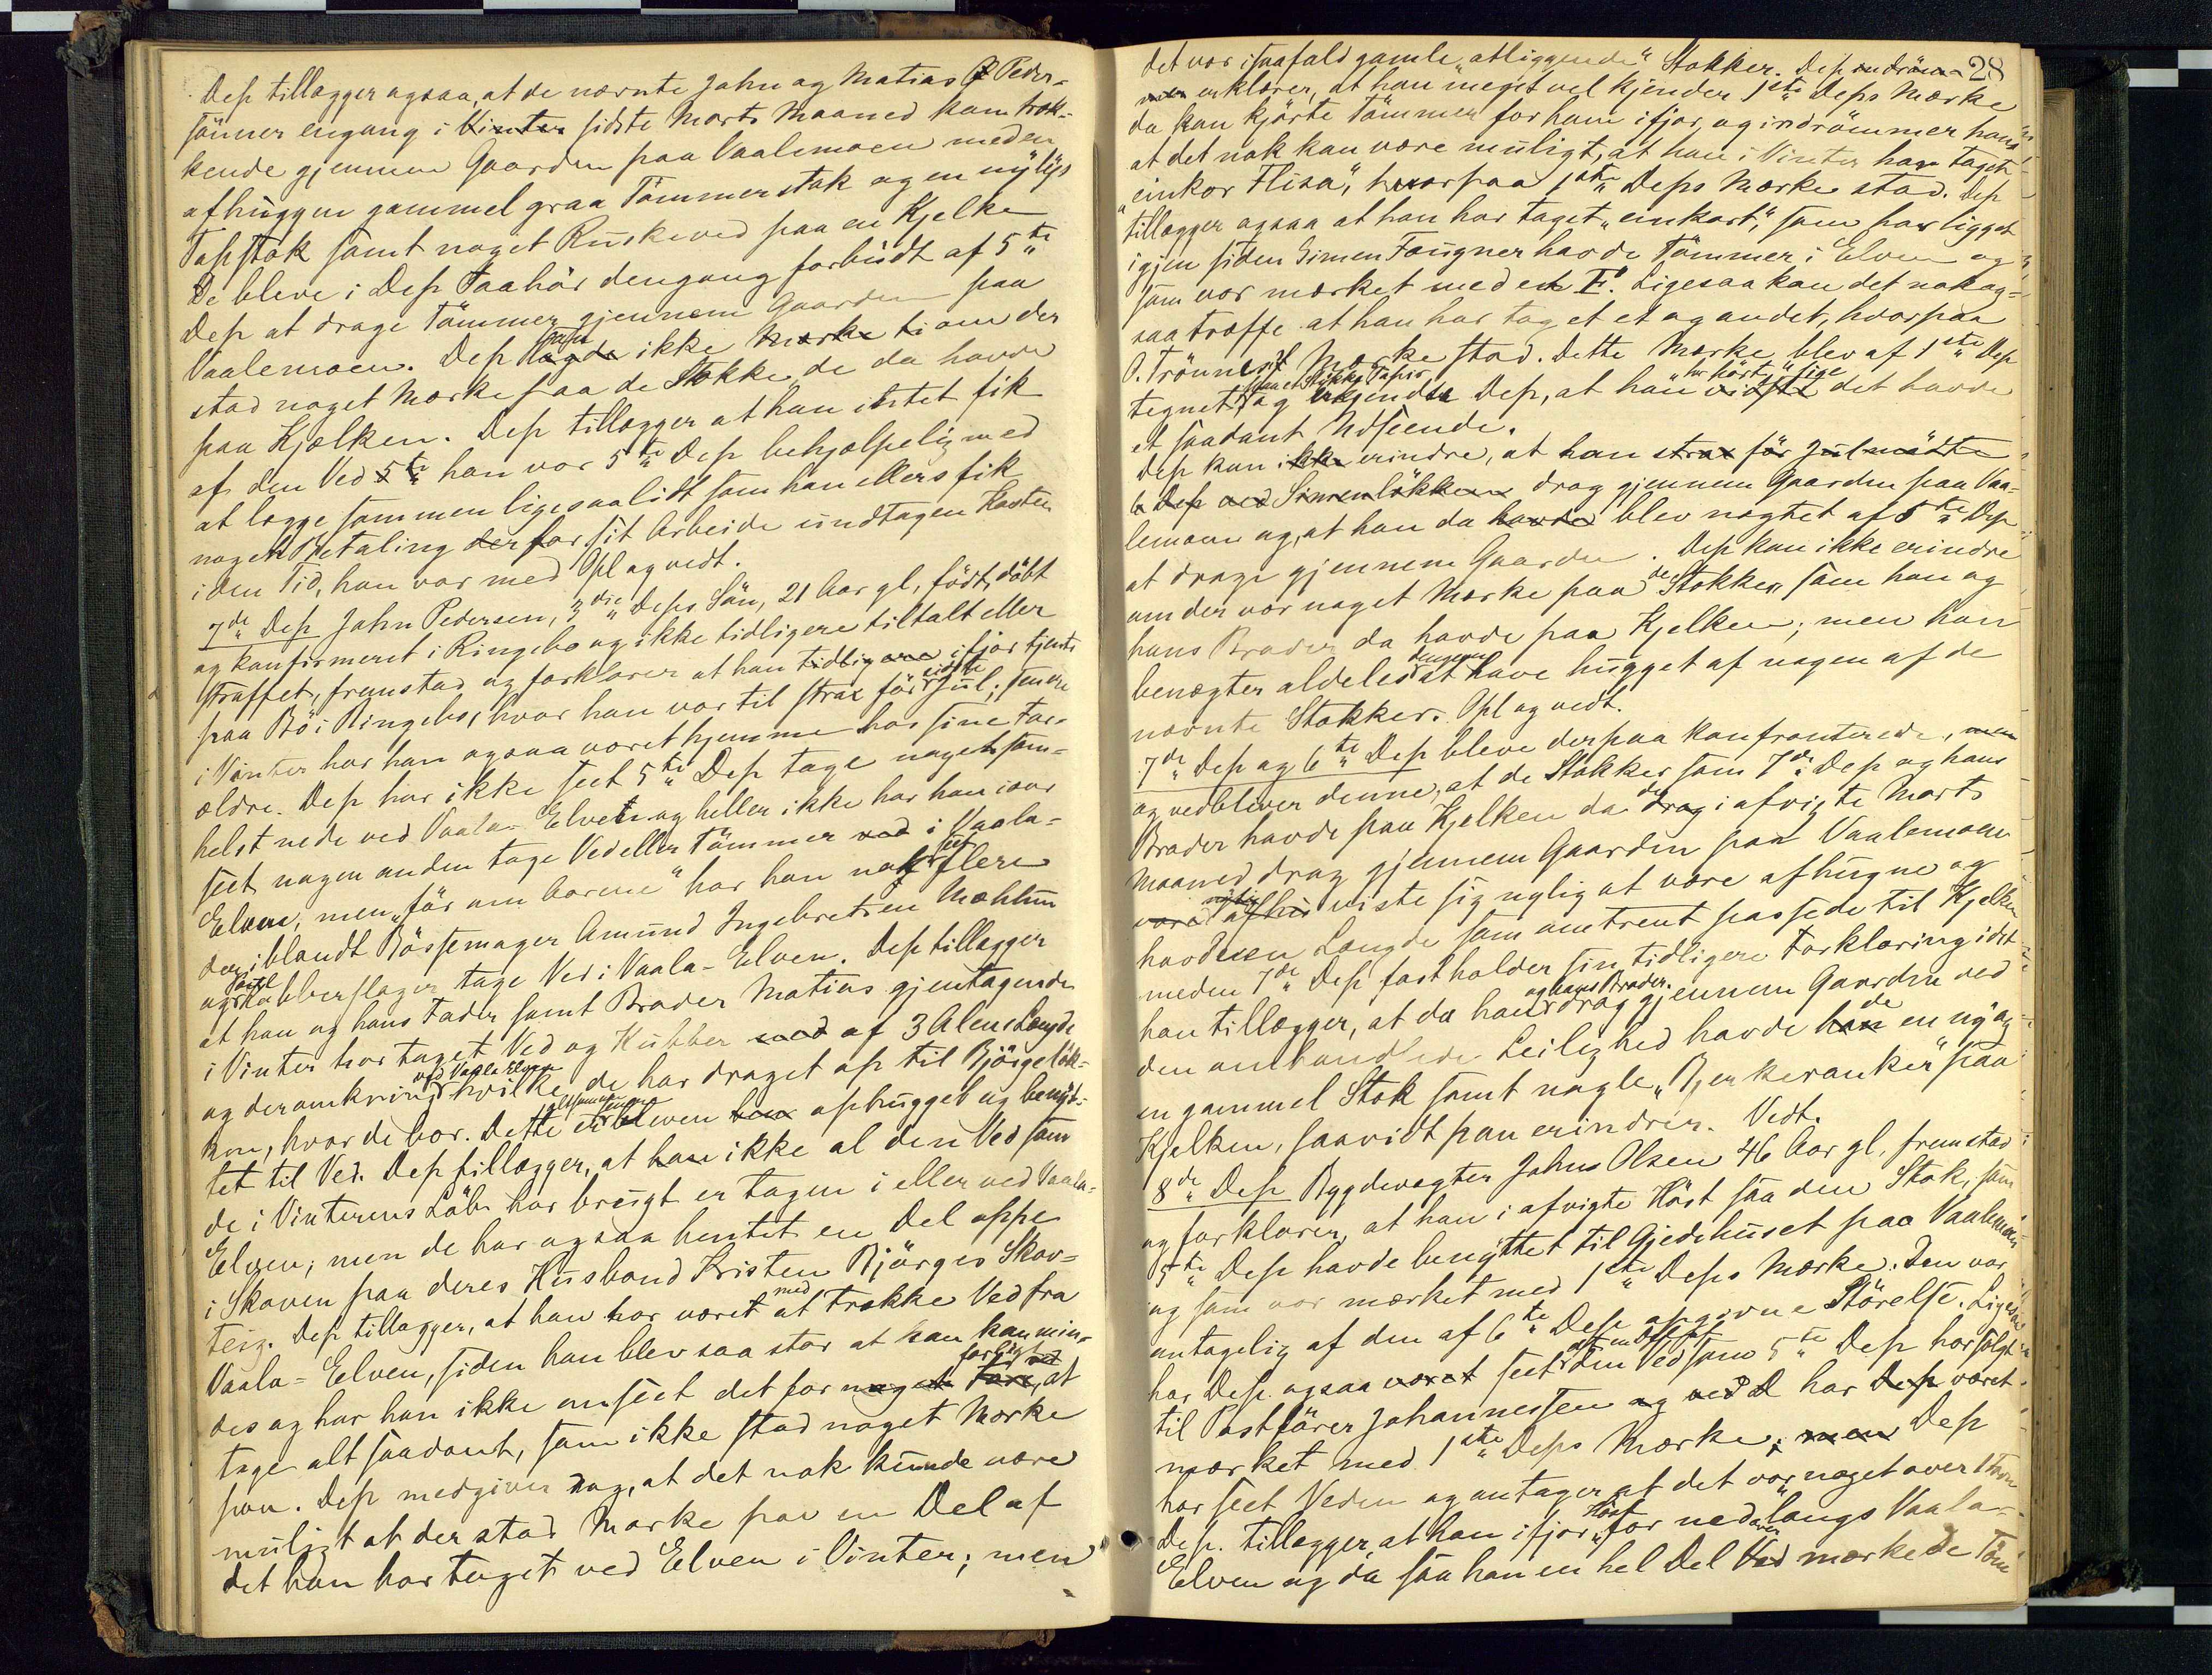 Dep tillægger ogsaa, at de nævnte John og Matias P Peder-
sønner engang i Vinter sidste Marts Maaned kom træk-
kende gjennem Gaarden paa Vaalemoen med en
afhuggen gammel graa Tømmerstok og en nyligs
Topstok samt noget Ruskeved paa en Kjelke
De bleve i Dep Paahør dengang forbudt af 5te
Dep at drage Tømmer gjennem Gaarden paa
Vaalemoen. Dep lagde ikke Mærke til om der
stod noget Mærke paa de Stokke de da havde
paa Kjælken. Dep tillægger at han intet fik
af den Ved 5te han var 5te Dep behjælpelig med
at lægge sammen ligesaalidt som han ellers fik
nogen Betaling der for sit Arbeide undtagen Kosten
i den Tid, han var med Opl og vedt.
7de Dep John Pedersen, 3die Deps Søn, 21 Aar gl, født, døbt
og konfirmeret i Ringebo og ikke tidligere tiltalt eller
straffet, fremstod og forklarer at han tidligere ifjor tjente
paa Bø i Ringebo, hvor han var til strax før sidste Jul; senere
i Vinter har han ogsaa været hjemme hos sine For-
ældre. Dep har ikke seet 5te Dep tage noget som-
helst nede ved Vaala-Elven og heller ikke har han iaar
seet nogen anden tage Ved eller Tømmer ved i Vaala-
Elven, men "før om Aarene" har han nok seet flere
deriblandt Bøssemager Amund Ingebretsen Mæhlum
og Kobberslager tage Ved i Vaala-Elven. Dep tillægger
at han og hans Fader samt Broder Matias gjentagende
i Vinter har taget Ved og Kubber ved af 3 Alens Længde
og deromkring ved Vaala Elven hvilke de har draget op til Bjørgeløk-
ken, hvor de bor. Dette er altsammen bleven hen ophugget og benyt-
tet til Ved. Dep tillægger, at han ikke al den Ved som
de i Vinterens Løb har brugt er tagen i eller ved Vaala-
Elven; men de har ogsaa hentet en Del oppe
i Skoven paa deres Husbond Kristen Bjørges Skov-
teig. Dep tillægger, at han har været med at trække Ved fra
Vaala-Elven, siden han blev saa stor at han kan min-
des og har han ikke anseet det for noget farligt ved at
tage alt saadant, som ikke stod noget Mærke
paa. Dep medgiver dog, at det nok kunde være
muligt at der stod Mærke paa en Del af
det han har taget ved Elven i Vinter; men
28
det var isaafald gamle "atliggende" Stokker. Dep indrøm-
mer erklærer, at han meget vel kjender 1ste Deps Mærke
da han kjørte Tømmer for ham ifjor, og indrømmer han
at det nok kan være muligt, at han i Vinter har taget
"einkor Flisa", hvorpaa 1ste Deps Mærke stod. Dep
tillægger ogsaa at han har taget "einkort", som har ligget
igjen siden Simen Fougner havde Tømmer i Elven og
som var mærket med et F. Ligesaa kan det nok og-
saa træffe at han har taget et og andet, hvorpaa
O. Trønnes Mærke stod. Dette Mærke blev af 1ste Dep
tegnet paa et Stykke Papir og Dep, at han har hørt sige det havde
et saadant Udseende.
Dep kan ikke erindre, at han strax før Jul mødte
6 Dep ved Simenløkken drog gjennem Gaarden paa Vaa-
lemoen og, at han da havde blev nægtet af 5te Dep
at drage gjennem Gaarden. Dep kan ikke erindre
om der var noget Mærke paa de Stokker, som han og
hans Broder da havde paa Kjelken; men han
benægter aldeles dengang at have hugget af nogen af de
nævnte Stokker. Opl og vedt.
7de Dep og 6te Dep bleve derpaa konfronterede, men
og vedbliver denne, at de Stokker som 7de Dep og hans
Broder havde paa Kjelken da de drog i afvigte Marts
Maaned drog gjennem Gaarden paa Vaalemoen
viste sig nylig at være afhugne og
havde en Længde som omtrent passede til Kjelken
meden 7de Dep fastholder sin tidligere Forklaring idet
han tillægger, at da han og hans Broder drog gjennem Gaarden ved
den omhandlede Leilighed havde de en ny og
en gammel Stok samt nogle "Bjerkeranker" paa
Kjelken, saavidt han erindrer. Vedt.
8de Dep Bygdevægter Johns Olsen 46 Aar gl, fremstod
og forklarer, at han i afvigte Høst saa den Stok, som
5te Dep havde benyttet til Gjedehuset paa Vaalemoen
og som var mærket med 1ste Deps Mærke. Den var
antagelig af den af 6te Dep opgivne Størelse. Ligesaa
har Dep ogsaa været seet den Ved som 5te Dep har solgt
til Postfører Johannessen og ved d har Dep været
mærket med 1ste Deps Mærke; men Dep
har seet Veden og antager at det var noget over 1 Favn
Dep. tillægger, at han ifjor Høst for nedover langs Vaala-
Elven og da saa han en hel Del Ved mærkede Tøm